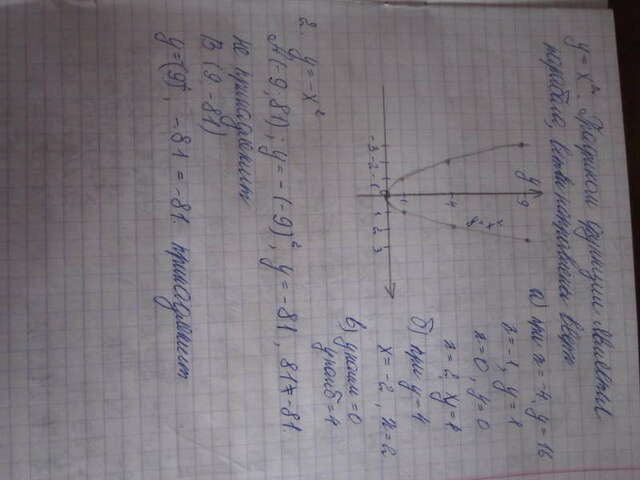 y = x². Графиком функции является
парабола, ветви направлены вверх
y
9
4
1
-3 -2 -1 0 1 2 3
y = x²
а) при x = -4, y = 16
x = -1, y = 1
x = 0, y = 0
x = 2, y = 4
б) при y = 4
x = -2, x = 2
в) y наим = 0
y наиб = 4
2. y = -x²
A(-9; 81); y = -(-9)²; y = -81, 81 ≠ -81.
не принадлежит
B (9; -81)
y = (9)², -81 = -81. принадлежит